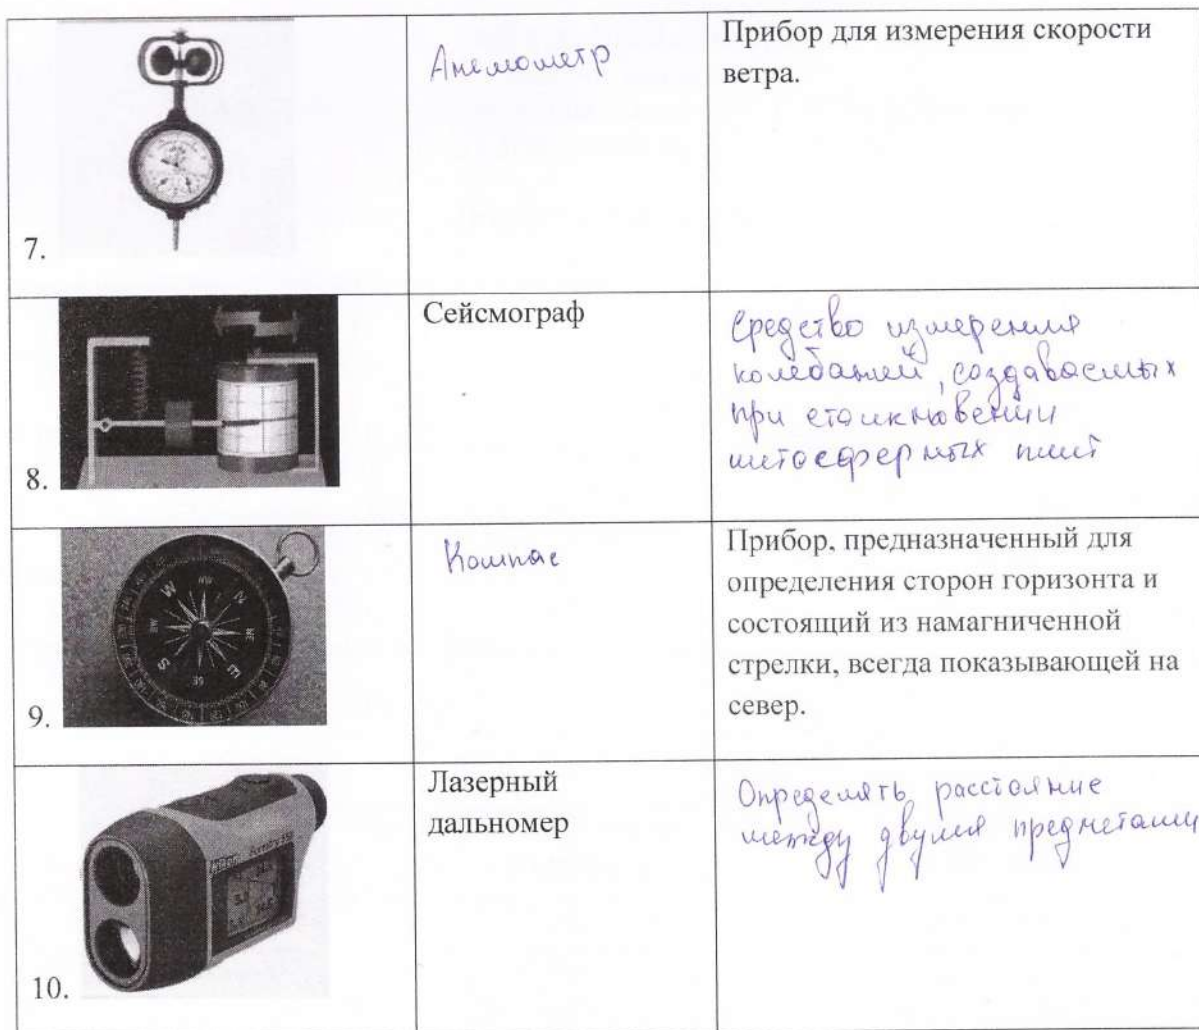 7.
Анемометр
Прибор для измерения скорости
ветра.
8.
Сейсмограф
средство измерения
колебаний, создаваемых
при столкновении
литосферных плит
9.
Компас
Прибор, предназначенный для
определения сторон горизонта и
состоящий из намагниченной
стрелки, всегда показывающей на
север.
N
NE
E
SE
S
W
NW
10.
Лазерный
дальномер
Определять расстояние
между двумя предметами
Nikon